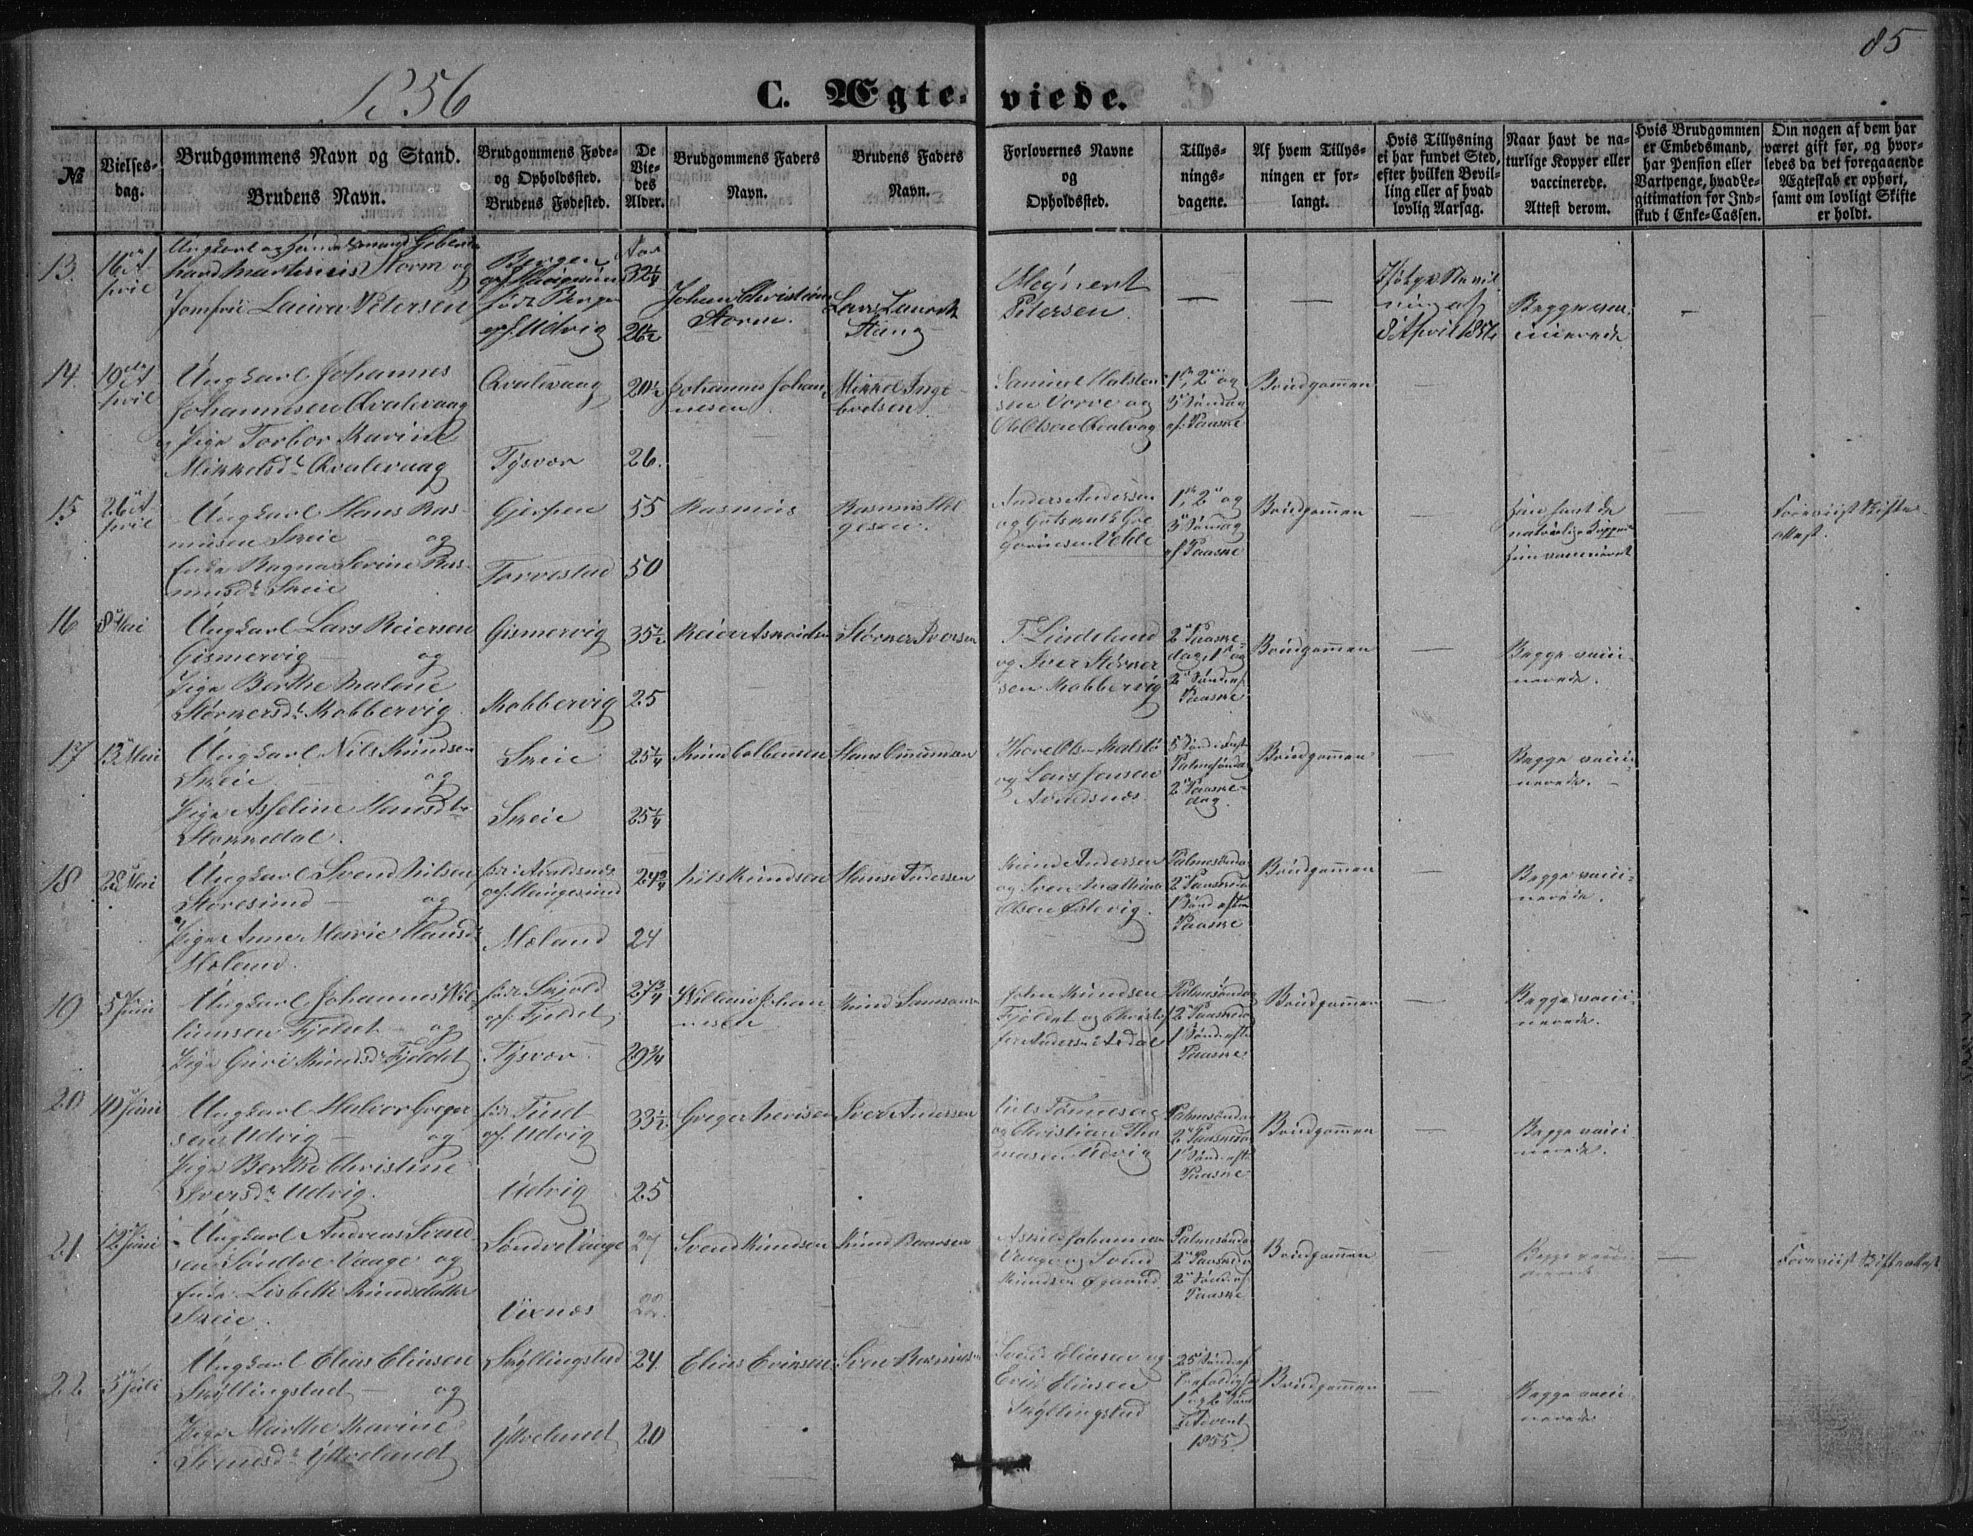 85
1856
C. Ægte-viede.
№
Vielses-
dag.
Brudgommens Navn og Stand.
Brudens Navn.
Brudgommens Føde-
og Opholdsted.
Brudens Fødested.
De
Vie-
des
Alder.
Brudgommens Faders
Navn.
Brudens Faders
Navn.
Forlovernes Navne
og
Opholdsted.
Tillys-
nings-
dagene.
Af hvem Tillys-
ningen er for-
langt.
Hvis Tillysning
ei har fundet Sted,
efter hvilken Bevil-
ling eller af hvad
lovlig Aarsag.
Naar havt de na-
turlige Kopper eller
vaccinerede.
Attest derom.
Hvis Brudgommen
er Embedsmand,
har Pension eller
Vartpenge, hvad Le-
gitimation for Ind-
skud i Enke-Cassen.
Om nogen af dem har
været gift før, og hvor-
ledes da det foregaaende
Ægteskab er ophørt,
samt om lovligt Skifte
er holdt.
13.
16 A
pril
Ungkarl og
hard Martinius Storm og
Jomfrue Laura Petersen
Bergen
født Bergen
oph. Udvig
Aar
32¼
26½
Johan Christian
Storm.
Lars Lauritz
Stang
Meinert
Petersen.
—
—
Ifølge Bevil-
ning af
8 April 1856
Begge vac-
cinerede
—
14.
19de A
pril
Ungkarl Johannes
Johannesen Qvalevaag
og Pige Torbor Karine
Mikkelsdr Qvalevaag
Qvalevaag
Tysvær
20½
26.
Johannes Johan
nesen
Mikkel Inge-
bretsen
Samuel Halsten
sen Vorve og
Ole Olsen Qvalvag
1ste, 2den og
3 Søndag
ef. Paaske
Brudgommen
—
15
26 A
pril
Ungkarl Hans Ras-
musen Skeie og
Enke Ragna Serine Ras-
musdr Skeie
Gjerpen
Torvestad
55
50
Rasmus
Rasmus Hel
gesen.
Anders Andersen
og Gutormsen
1ste, 2den og
3 Søndag
ef Paaske
Brudgommen
—
Han havt de
naturlige Kopper
hun vaccineret
—
Foreviist Skifte
attest.
16
8 Mai
Ungkarl Lars Reiersen
Gismervig — og
Pige Berthe Malene
Størkersdr Kobbervig
Gismervig
Kobbervig
35½
25
Reier Asmundsen
Størker Iversen
T. Lindelund
og Iver Størker
sen Kobbervig
2 Paaske-
dag 1ste og
2 Sønd. ef.
Paaske
Brudgommen
—
Begge vacci-
nerede.
17
13 Mai
Ungkarl Nils Knudsen
Skeie — og
Pige Asseline Hansdtr
Stokkedal.
Skeie
Skeie
25¼
25¼
Knud Colbensen
Hans Omundsen
og Lars Jensen
Avaldsnes
5 Sønd i Faste
Palmesøndag
2 Paaske-
dag.
Brudgommen
—
Begge vacci-
nerede.
18
22 Mai
Ungkarl Svend Nilsen
Storesund — og
Pige Anne Marie Hansdr
Mæland.
født i Avaldsnes
oph. Haugesund
Mæland
24¾
24
Nils Knudsen
Hans Andersen
Knud Andersen
og Sven Mathias
Olsen Østevig.
Palmesøndag
2 Paaskedag
1 Sønd efter
Paaske
Brudgommen
Begge vacci-
nerede.
19
5 Juni
Ungkarl Johannes Wil-
liumsen Fjeldet og
Pige Guri Knudsdr Fjeldet
født Skjold
oph. Fjeldet
Tysvær
27¾
29¾
Willium Johan
nesen
Knud Samsonsen
John Knudsen
Fjeldet og Christof
fer Andersen Aadal
Palmesøndag
2 Paaskedag
1 Sønd. efter
Paaske
Brudgommen
—
Begge vacci-
nerede.
20
10 Juni
Ungkarl Halvor Greger
sen Udvig — og
Pige Berthe Christine
Iversdr Udvig.
født Tind
oph. Udvig
Udvig
33½
25
Greger Aevisen
Iver Andersen
Niels Tønnesen
og Christian Tho
masen Udvig
Palmesøndag
2 Paaskedag
1 Sønd. efter
Paaske
Brudgommen
—
Begge vacci-
nerede.
21
12 Juni
Ungkarl Andreas Svend
sen Søndre Vaage og
Enke Lisbeth Knudsdatter
Skeie.
Søndre Vaage
Vixnæs
27
22
Svend Knudsen
Knud Baardsen
Askild Johannesen
Vaage og Svend
Knudsen Øgaard
Palmesøndag
2 Paaskedag
2 Sønd. ef.
Paaske
Brudgommen
—
Begge vacci-
nerede
—
Foreviist Skifteattest
22
5 Juli
Ungkarl Elias Eliasen
Skyllingstad — og
Pige Marthe Karine
Svendsdr Ytreland
Skyllingstad
Ytreland
24.
20
Elias Eriksen
Sven Rasmussen
Svend Eliasen og
Erik Eliasen
Skyllingstad
25 Sønd. ef.
Trefoldighed
1 og 2 Sønd
i Advent
1855
Brudgommen
—
Begge vacci-
nerede